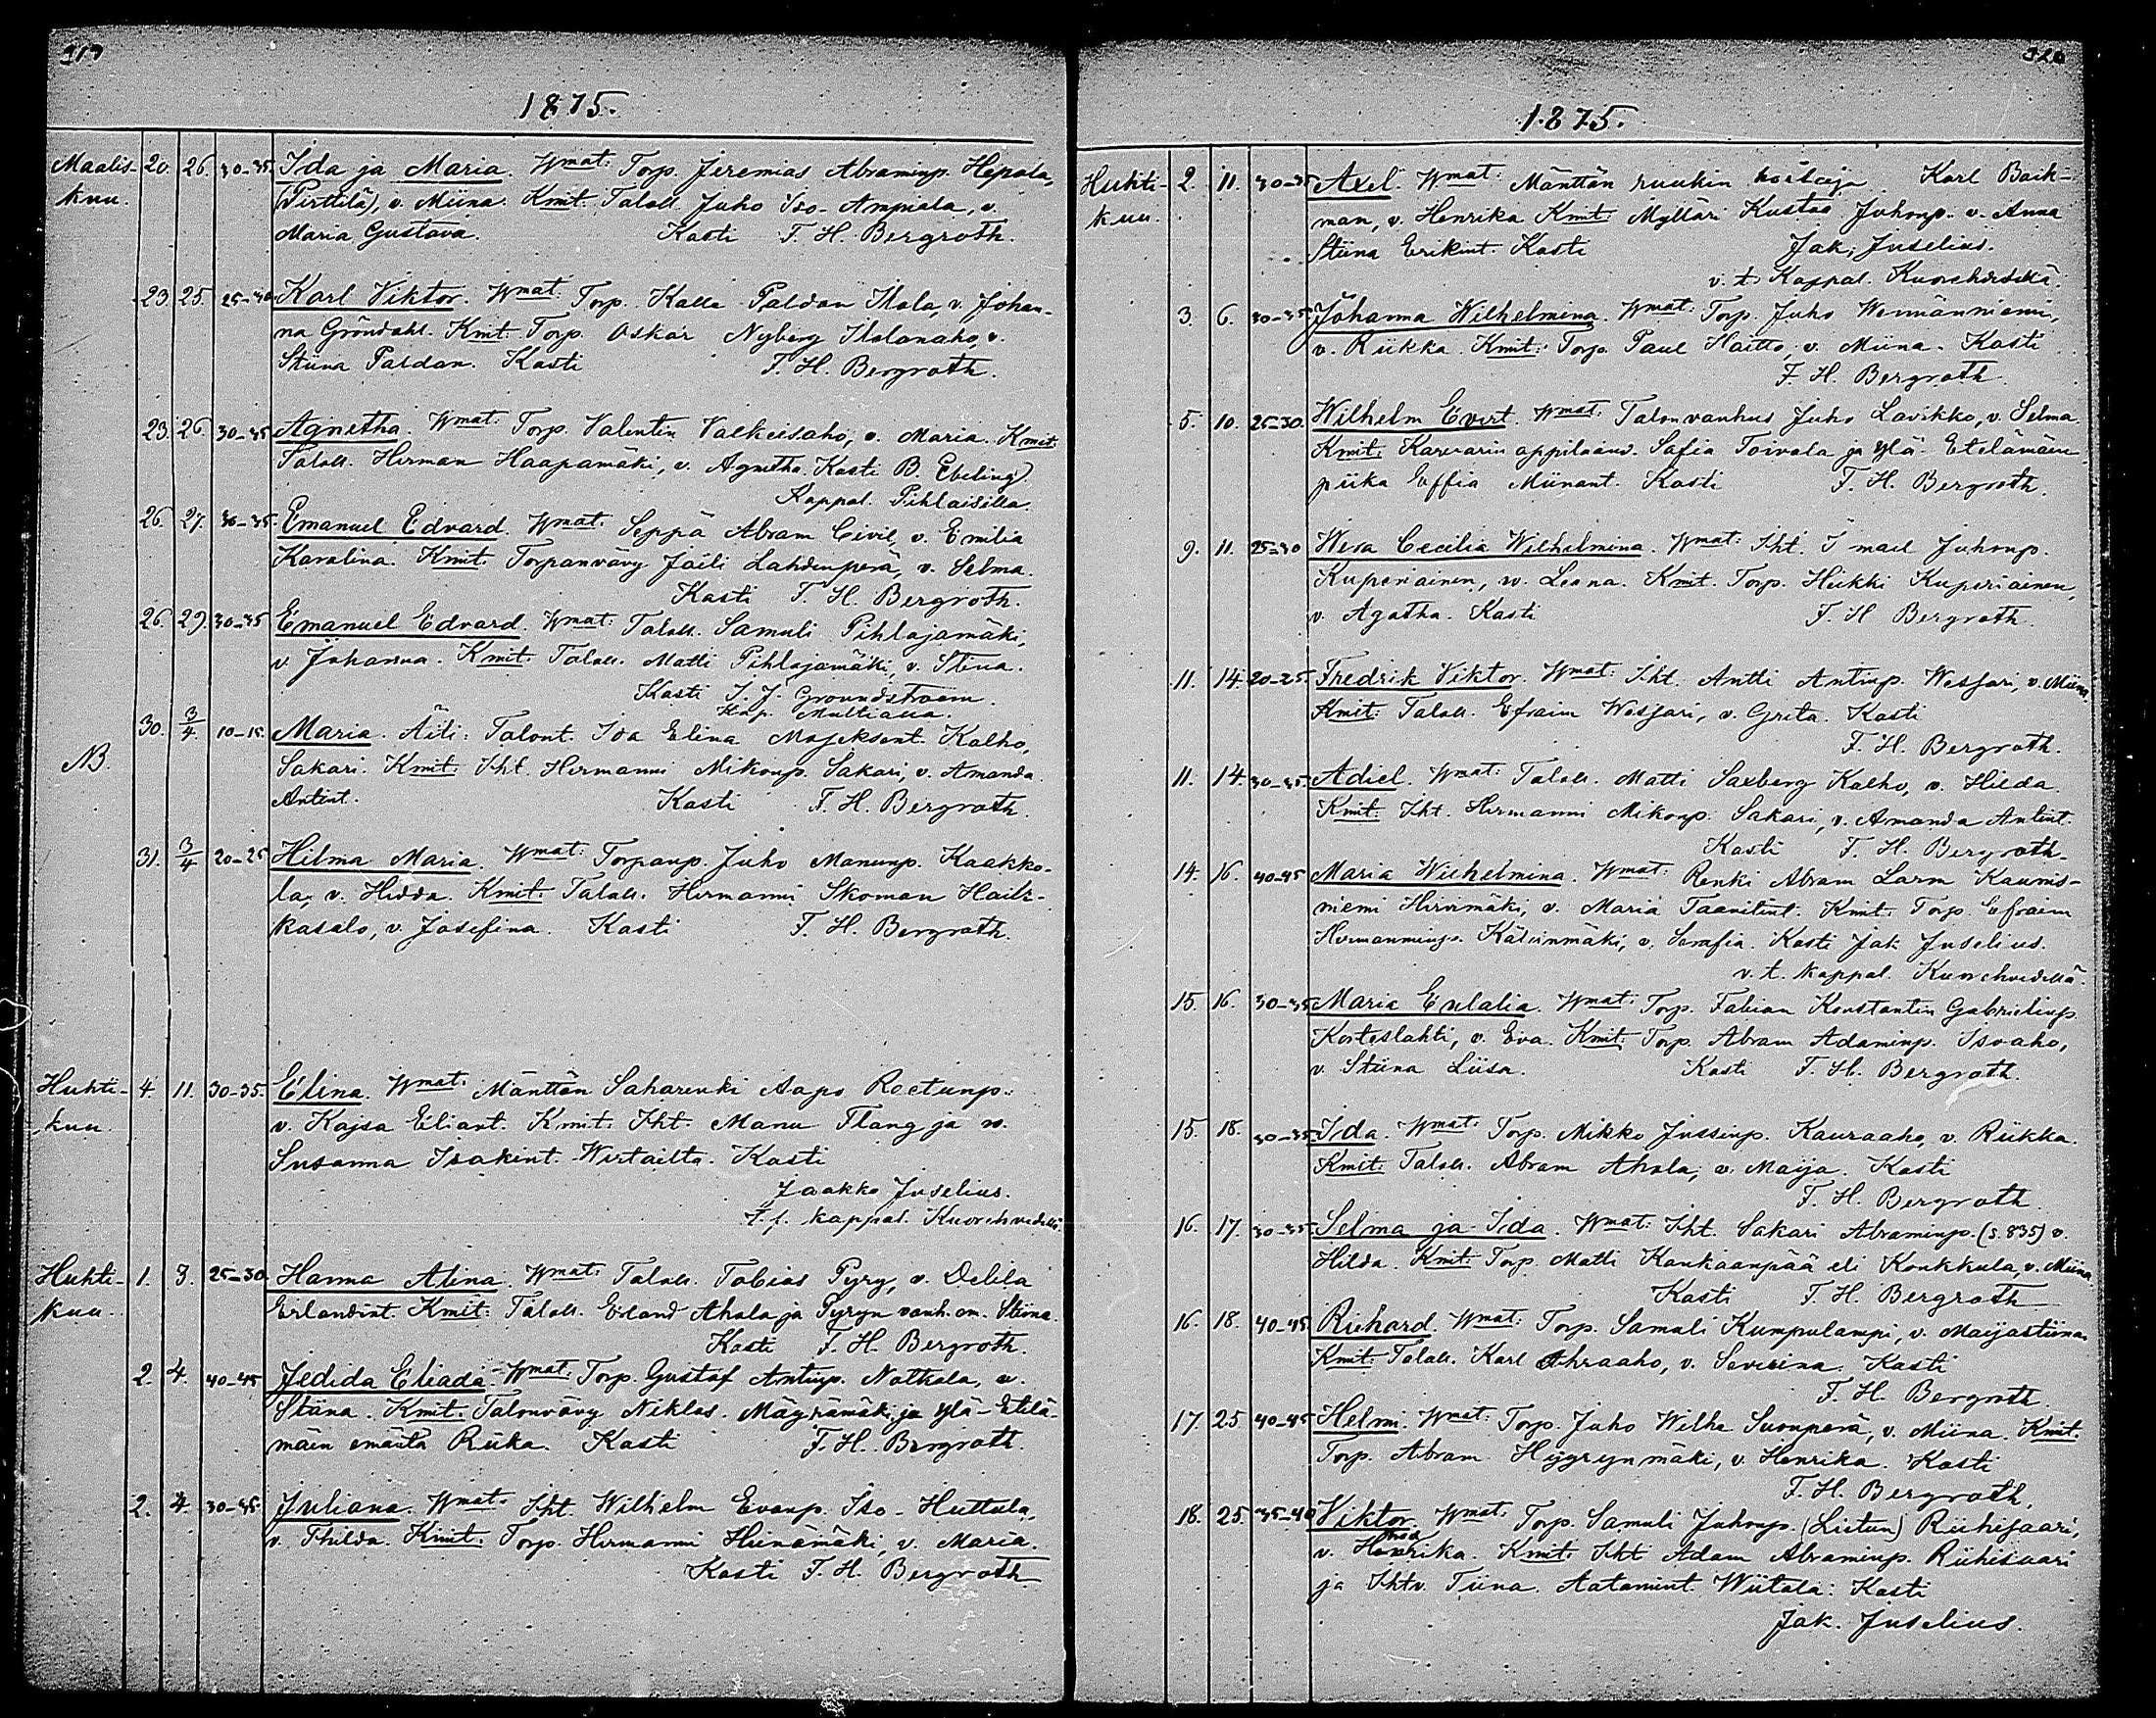 319
1875.
Maalis- 20. 26. 30-35. Ida ja Maria. Wmat: Torp. Jeremias Abraminp. Hepola,
kuu. (Pirttilä), v. Miina. Kmit. Talall. Juho Iso-Ampiala, v.
Maria Gustava. Kasti F. H. Bergroth.
23 25. 25-30. Karl Viktor. Wmat: Torp. Kalle Paldan Ilola, v. Johan-
na Gröndahl. Kmit: Torp. Oskar Nyberg Ilolanaho, v.
Stiina Paldan. Kasti F. H. Bergroth.
23. 26. 30-35 Agnetha. Wmat: Torp. Valentin Valkeisaho, v. Maria. Kmit.
Talall. Herman Haapamäki, v. Agnetha. Kasti B. Ebeling
Kappal. Pihlaisilla.
26. 27. 30-35. Emanuel Edvard. Wmat: Seppä Abram Civil, v. Emilia
Karolina. Kmit: Torpanvävy Jäili Lahdenperä, v. Selma.
Kasti F. H. Bergroth.
26. 29. 30-35 Emanuel Edvard. Wmat: Talall. Samuli Pihlajamäki,
v. Johanna. Kmit. Talall. Matti Pihlajamäki, v. Stina.
Kasti I. J. Groundstroem.
Kap. Multialla.
30. 3/4. 10-15. Maria. Äiti: Talont. Ida Elina Majeksent. Kalho,
NB. Sakari. Kmit: Iht. Hermanni Mikonp. Sakari, v. Amanda
Antint. Kasti F. H. Bergroth.
31. 3/4 20-25 Hilma Maria. Wmat: Torpanp. Juho Manunp. Kaakko-
la, v. Hedda. Kmit: Talall. Hermanni Skoman Haik-
kasalo, v. Josefina. Kasti F. H. Bergroth.
Huhti- 4. 11. 30-35. Elina. Wmat: Mänttän Saharenki Aapo Reetunp.
kuu. v. Kajsa Eliant. Kmit: Iht. Manu Flang ja v.
Susanna Isakint. Wirtailta. Kasti
Jaakko Juselius.
kappal. Kuorehvedellä
Huhti- 1. 3. 25-30. Hanna Alina. Wmat: Talall. Tobias Pyry, v. Delila
kuu. Erlandint. Kmit: Talall. Erland Ahola ja Pyryn vanh. em. Stiina.
Kasti F. H. Bergroth.
2. 4. 40-45 Jedida Eliada. Wmat: Torp. Gustaf Antinp. Notkola, v.
Stiina. Kmit: Talonvävy Niklas Mäyrämäki ja Ylä-Etelä-
mäen emäntä Riika. Kasti F. H. Bergroth.
2. 4. 30-35. Juliana. Wmat: Iht. Wilhelm Evanp. Iso-Huttula,
v. Thilda. Kmit: Torp. Hermanni Heinämäki, v. Maria.
Kasti F. H. Bergroth
320
1875.
Huhti- 2. 11. 30-35 Axel. Wmat: Mänttän ruukin Karl Back-
kuu. man, v. Henrika Kmit: Mylläri Kustaa Juhonp. v. Anna
Stiina Erikint. Kasti Jak. Juselius.
v. t. Kappal. Kuorehvedellä.
3. 6. 30-35 Johanna Wilhelmina. Wmat: Torp. Juho Wermänniemi,
v. Riikka. Kmit: Torp. Paul Haitto, v. Miina. Kasti
F. H. Bergroth
5. 10. 25-30. Wilhelm Evert. Wmat: Talonvanhus Juho Lavikko, v. Selma.
Kmit: Kaverarin Safia Toivola ja Ylä-Etelämäen
piika Effia Miinant. Kasti F. H. Bergroth.
9. 11. 25-30 Wera Cecilia Wilhelmina. Wmat: Iht. Ismael Juhonp.
Kuperiainen, v. Leena. Kmit. Torp. Heikki Kuperiainen,
v. Agatha. Kasti F. H Bergroth.
11. 14. 20-25. Fredrik Viktor. Wmat: Iht. Antti Antinp. Wessari, v. Miina.
Kmit: Talall. Efraim Wessari, v. Greta. Kasti
F. H. Bergroth.
11. 14. 30-35. Adiel. Wmat: Talall. Matti Saxberg Kalho, v. Hilda.
Kmit: Iht. Hermanni Mikonp. Sakari, v. Amanda Antint.
Kasti F. H. Bergroth.
14. 16. 40-45 Maria Wilhelmina. Wmat: Renki Abram Larm Kaunis-
niemi Hirvimäki, v. Maria Taavitint. Kmit: Torp. Efraim
Hermanninp. Käkinmäki, v. Serafia. Kasti Jak Juselius.
v. t. kappal. Kuorehvedellä.
15. 16. 30-35 Maria Eulalia. Wmat: Torp. Fabian Konstantin Gabrielinp.
Korteslahti, v. Eva. Kmit: Torp. Abram Adaminp. Isoaho,
v. Stiina Liisa. Kasti F. H. Bergroth.
15. 18. 30-35 Ida. Wmat: Torp. Mikko Jussinp. Kauraaho, v. Riikka.
Kmit: Talall. Abram Ahola, v. Maija. Kasti
F. H. Bergroth.
16. 17. 30-35. Selma ja Ida. Wmat: Iht. Sakari Abraminp. (s. 835) v.
Hilda. Kmit: Torp. Matti Kankaanpää eli Konkkula, v. Miina
Kasti F. H. Bergroth
16. 18. 40-45 Richard. Wmat: Torp. Samuli Kumpulampi, v. Maijastiina
Kmit: Talall. Karl Ahraaho, v. Severina. Kasti
F. H. Bergroth.
17. 25. 40-45 Helmi. Wmat: Torp. Juho Wilhe Suonperä, v. Miina. Kmit.
Torp. Abram Hyyrynmäki, v. Henrika. Kasti
F. H. Bergroth.
18. 25. 35-40 Viktor. Wmat: Torp. Samuli Juhonp. (Lietun) Riihisaari,
v. Henrika. Kmit: Iht Adam Abraminp. Riihisaari
ja Ihtv. Tiina Aatamint. Wiitala: Kasti
Jak. Juselius.